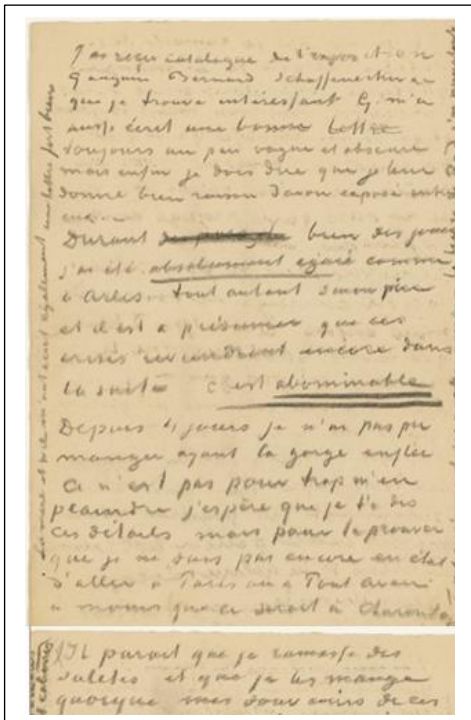 J'ai reçu catalogue de l'exposition
Gauguin Bernard Schuffenecker &c
que je trouve intéressant G. m'a
aussi écrit une bonne lettre
toujours un peu vague et obscure
mais enfin je dois dire que je leur
donne bien raison d'avoir exposé entre
eux.
Durant bien des jours
j'ai été absolument egaré comme
à Arles. tout autant sinon pire
et il est a présumer que ces
crises reviendront encore dans
la suite c'est abominable
Depuis 4 jours je n'ai pas pu
manger ayant la gorge enflée
Ce n'est pas pour trop m'en
plaindre j'espère que je te dis
ces détails mais pour te prouver
que je ne suis pas encore en état
d'aller à Paris ou a Pont aven
à moins que ce serait à Charenton
Il parait que je ramasse des
saletés et que je les mange
quoique mes souvenirs de ces
La mère et m'ont écrit également une lettre fort bien